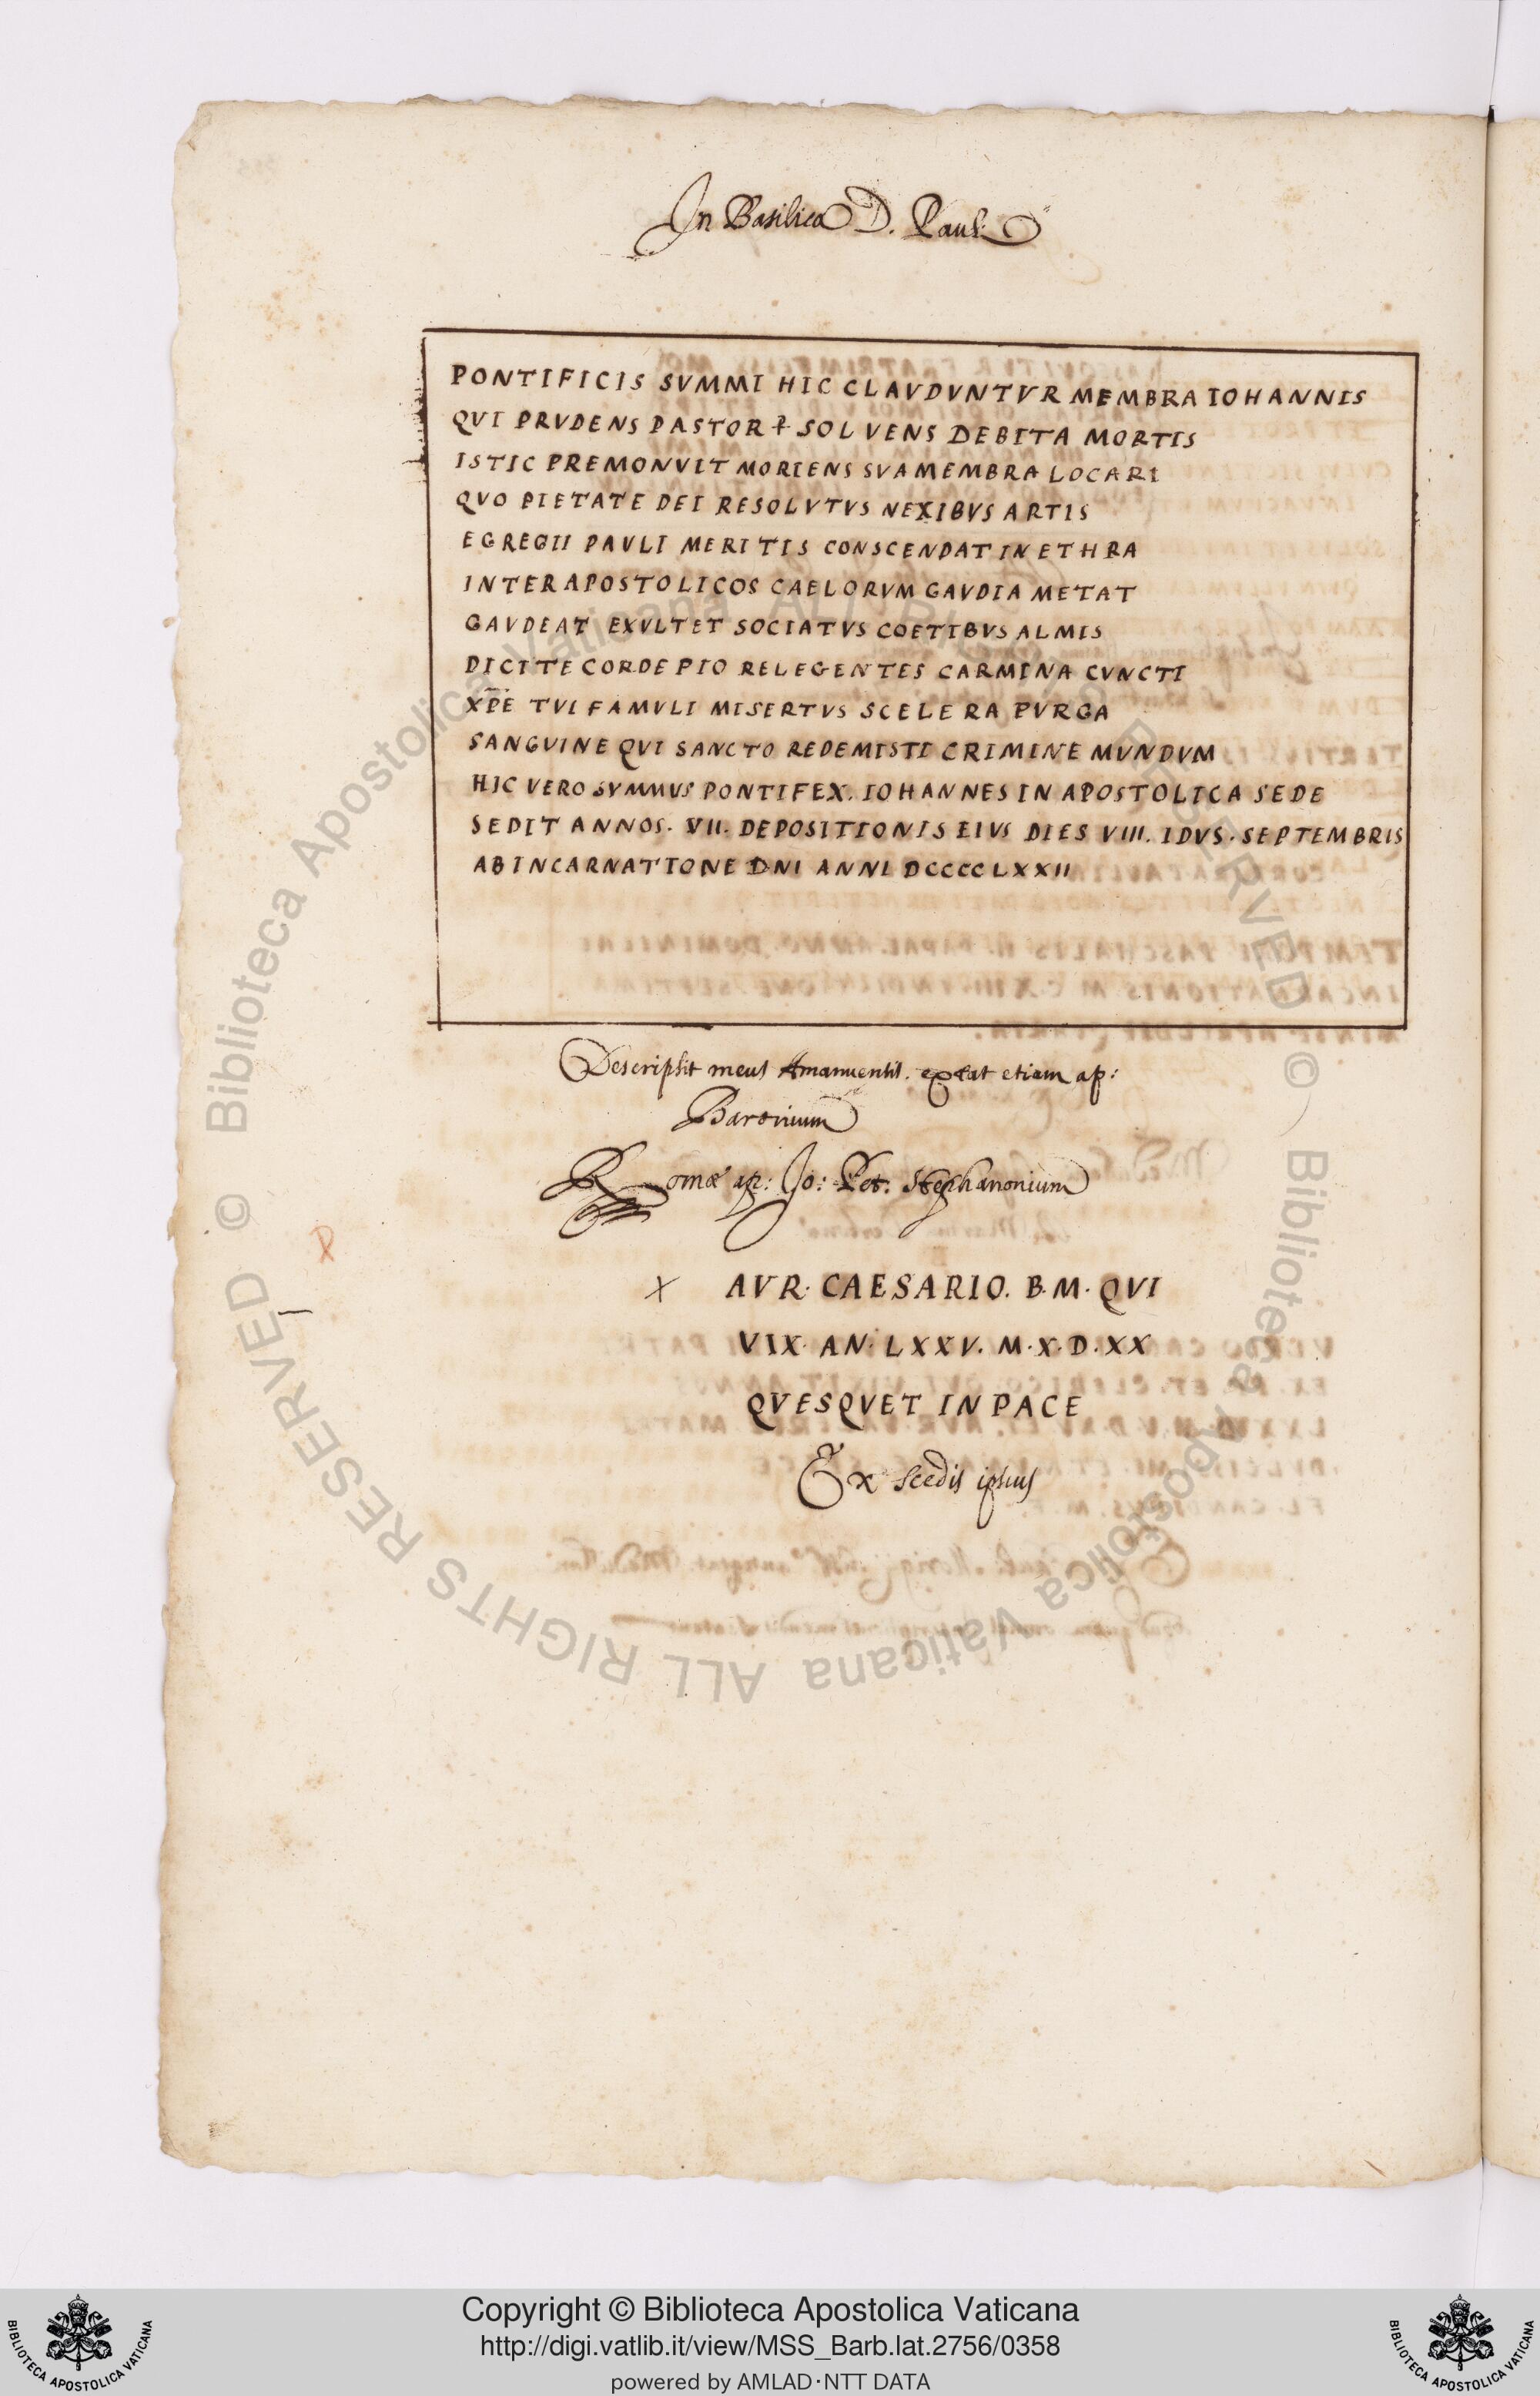 In Basilica D. Pauli
PONTIFICIS SVMMI HIC CLAVDVNTVR MEMBRA IOHANNIS
QVI PRVDENS PASTOR ꝉ SOLVENS DEBITA MORTIS
ISTIC PREMONVIT MORIENS SVA MEMBRA LOCARI
QVO PIETATE DEI RESOLVTVS NEXIBVS ARTIS
EGREGII PAVLI MERITIS CONSCENDAT IN ETHRA
INTER APOSTOLICOS CAELORVM GAVDIA METAT
GAVDEAT EXVLTET SOCIATVS COETIBVS ALMIS
DICITE CORDE PIO RELEGENTES CARMINA CVNCTI
XP̅E TVI FAMVLI MISERTVS SCELERA PVRGA
SANGVINE QVI SANCTO REDEMISTI CRIMINE MVNDVM
HIC VERO SVMMVS PONTIFEX. IOHANNES IN APOSTOLICA SEDE
SEDIT ANNOS. VII. DEPOSITIONIS EIVS DIES VIII. IDVS. SEPTEMBRIS
AB INCARNATIONE DNI ANNI DCCCCLXXII
Descripsit meus Amanuensis. extat etiam ap:
Baronium
Romæ ap: Jo: Pet. Stephanonium
X AVR. CAESARIO. B. M. QVI
VIX. AN. LXXV. M. X. D. XX
QVESQVET IN PACE
Ex scedis ipsius
Copyright © Biblioteca Apostolica Vaticana
http://digi.vatlib.it/view/MSS_Barb.lat.2756/0358
powered by AMLAD·NTT DATA
BIBLIOTECA APOSTOLICA VATICANA
BIBLIOTECA APOSTOLICA VATICANA
© Biblioteca Apostolica Vaticana ALL RIGHTS RESERVED © Biblioteca Apostolica Vaticana ALL RIGHTS RESERVED